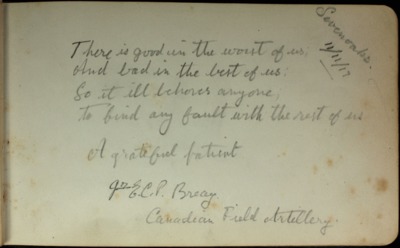 Sevenoaks.
11/11/17
There is good in the worst of us;
And bad in the best of us:
So it ill behoves anyone,
To find any fault with the rest of us
A grateful patient
Gnr E.C.P. Breay
Canadian Field Artillery.